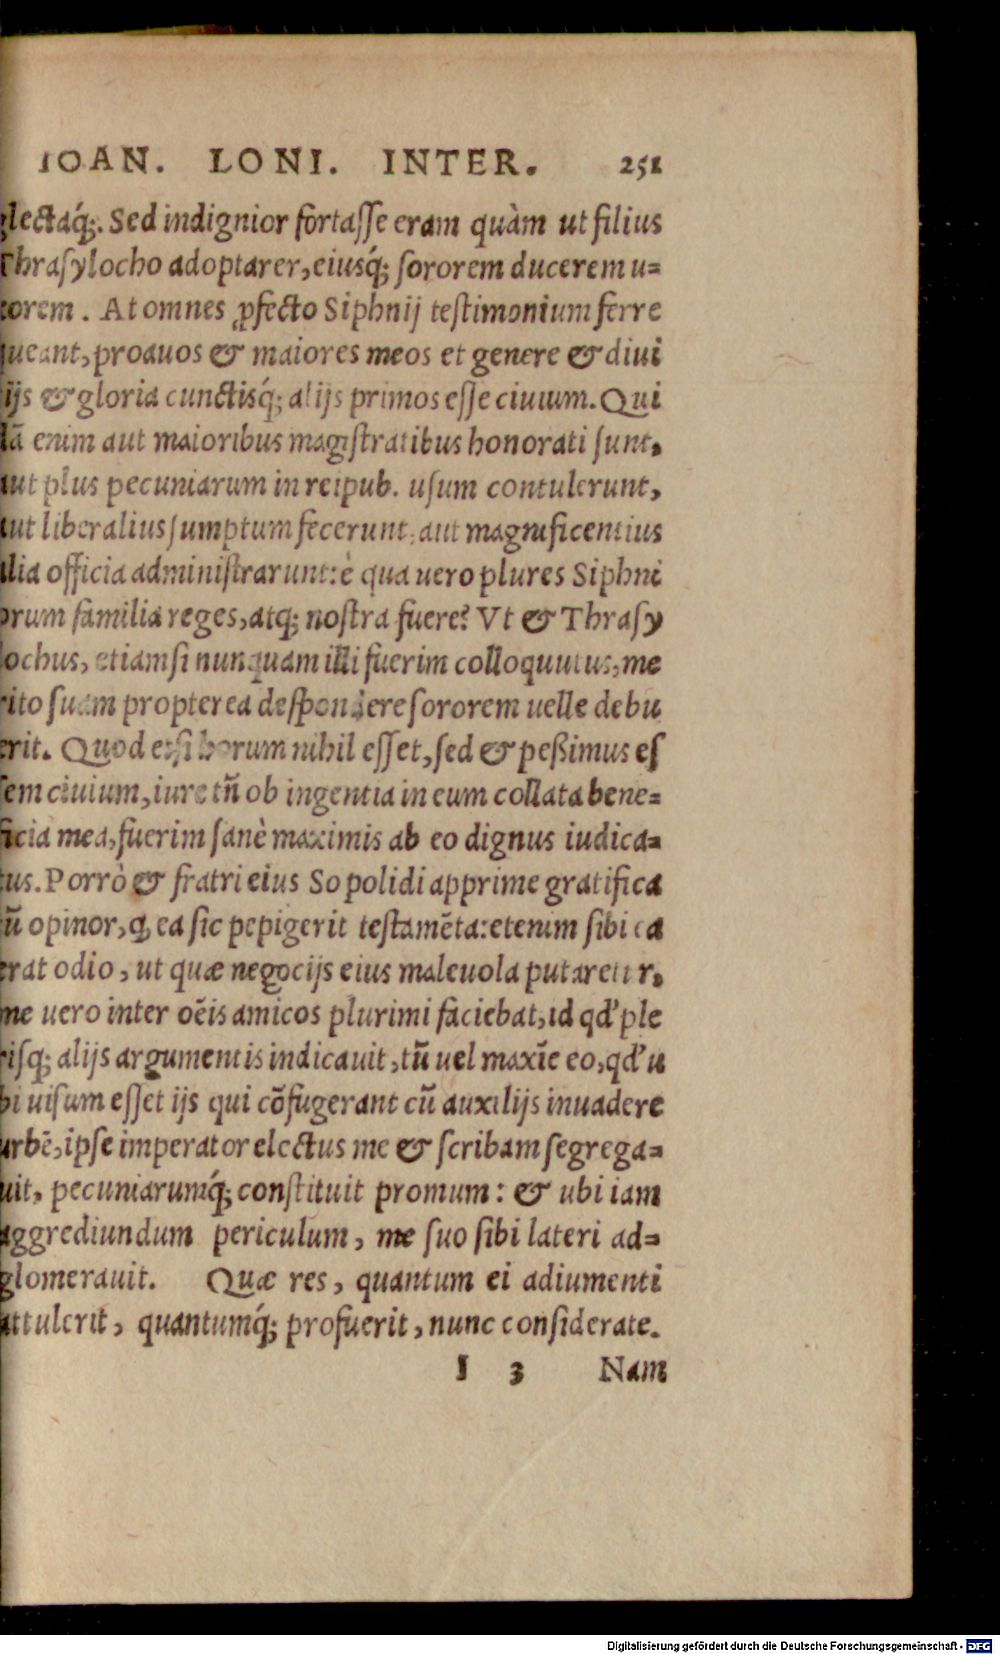 IOAN. LONI. INTER. 251
glectaq́;. Sed indignior fortasse eram quàm ut filius
Thrasylocho adoptarer, eiusq́; sororem ducerem u=
xorem. At omnes ꝓfecto Siphnij testimonium ferre
queant, proauos & maiores meos et genere & diui
tijs & gloria cunctisq́; alijs primos esse ciuium. Qui
nā enim aut maioribus magistratibus honorati sunt,
aut plus pecuniarum in reipub. usum contulerunt,
aut liberalius sumptum fecerunt, aut magnificentius
alia officia administrarunt: è qua uero plures Siphni
orum familia reges, atq; nostra fuere? Vt & Thrasy
lochus, etiamsi nunquam illi fuerim colloquutus, me
rito suam propterea despondere sororem uelle debu
erit. Quod etsi horum nihil esset, sed & peßimus es
sem ciuium, iure tñ ob ingentia in eum collata bene=
ficia mea, fuerim sanè maximis ab eo dignus iudica=
tus. Porrò & fratri eius Sopolidi apprime gratifica
tū opinor, ꝙ ea sic pepigerit testamēta: etenim sibi ea
erat odio, ut quæ negocijs eius maleuola putaretur,
me uero inter oēis amicos plurimi faciebat, id qd' ple
risq; alijs argumentis indicauit, tū uel maxīe eo, qd' u
bi uisum esset ijs qui cōfugerant cū auxilijs inuadere
urbē, ipse imperator electus me & scribam segrega=
uit, pecuniarumq́; constituit promum: & ubi iam
aggrediundum periculum, me suo sibi lateri ad=
glomerauit. Quæ res, quantum ei adiumenti
attulerit, quantumq́; profuerit, nunc considerate.
I 3 Nam
Digitalisierung gefördert durch die Deutsche Forschungsgemeinschaft - DFG